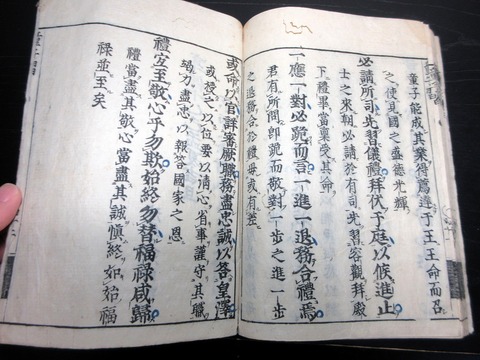 童子能成其業得爲達于王王命而召
之使見國之盛德光輝
必請所司先習儀禮拜伏于庭以候進止
士之來朝必請於有司先習容觀拜殿
下禮畢當稟受其命
一應一對必跪而言一進一退務合禮焉
君有所問即跪而敬對一步之進一步
之退務合於禮毋或有差
或命以官詳審厥職務盡忠誠以答皇澤
或授之以位要以清心省事謹守其職
竭力盡忠以報答國家之恩
禮宜至敬心乎勿欺始終勿替福祿咸歸
禮當盡其敬心當盡其誠慎終如始福
祿並至矣